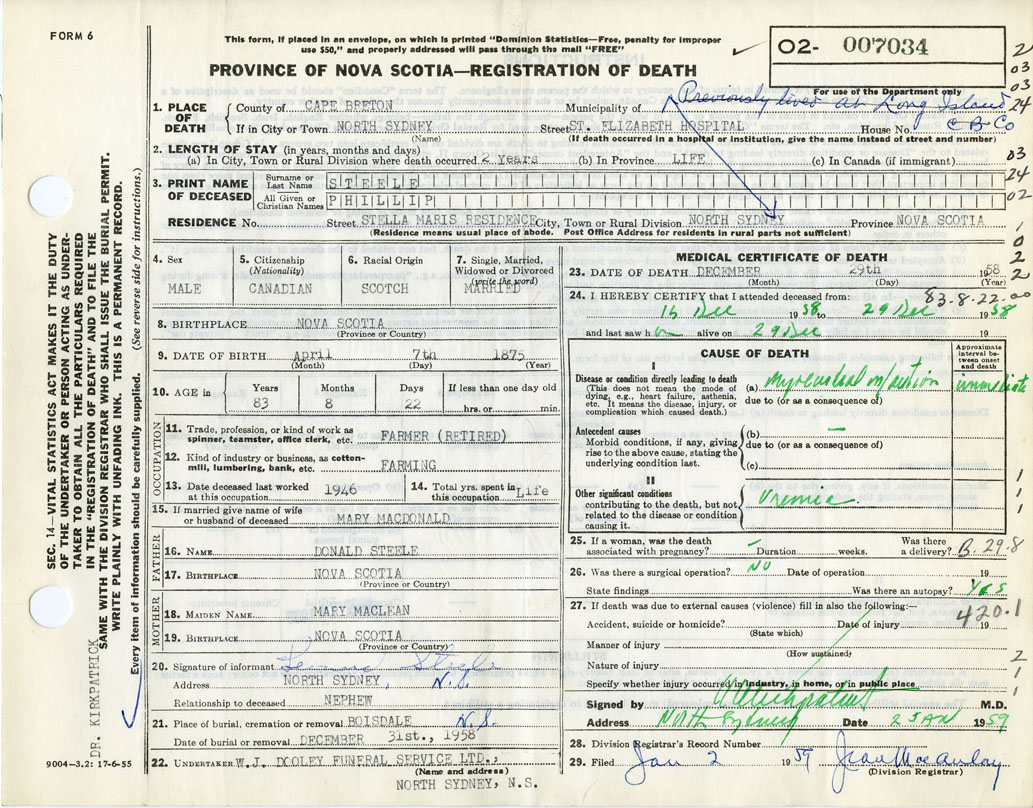 FORM 6
This form, if placed in an envelope, on which is printed "Dominion Statistics—Free, penalty for improper
use $50," and properly addressed will pass through the mail "FREE"
02- 007034
For use of the Department only
PROVINCE OF NOVA SCOTIA—REGISTRATION OF DEATH
Previously lived at Long Island
C B Co
1. PLACE OF DEATH
County of CAPE BRETON Municipality of
If in City or Town NORTH SYDNEY Street ST. ELIZABETH HOSPITAL House No.
(Name) (If death occurred in a hospital or institution, give the name instead of street and number)
2. LENGTH OF STAY (in years, months and days)
(a) In City, Town or Rural Division where death occurred 2 Years (b) In Province LIFE (c) In Canada (if immigrant)
3. PRINT NAME OF DECEASED
Surname or Last Name STEELE
All Given or Christian Names PHILLIP
RESIDENCE No. Street STELLA MARIS RESIDENCE City, Town or Rural Division NORTH SYDNEY Province NOVA SCOTIA
(Residence means usual place of abode. Post Office Address for residents in rural parts not sufficient)
4. Sex
MALE
5. Citizenship
(Nationality)
CANADIAN
6. Racial Origin
SCOTCH
7. Single, Married,
Widowed or Divorced
(write the word)
MARRIED
8. BIRTHPLACE NOVA SCOTIA
(Province or Country)
9. DATE OF BIRTH April 7th 1875
(Month) (Day) (Year)
10. AGE in Years Months Days If less than one day old
83 8 22 hrs. or min.
OCCUPATION
11. Trade, profession, or kind of work as
spinner, teamster, office clerk, etc. FARMER (RETIRED)
12. Kind of industry or business, as cotton-
mill, lumbering, bank, etc. FARMING
13. Date deceased last worked
at this occupation 1946
14. Total yrs. spent in
this occupation Life
15. If married give name of wife
or husband of deceased MARY MACDONALD
FATHER
16. NAME DONALD STEELE
17. BIRTHPLACE NOVA SCOTIA
(Province or Country)
MOTHER
18. MAIDEN NAME MARY MACLEAN
19. BIRTHPLACE NOVA SCOTIA
(Province or Country)
20. Signature of informant Steele
Address NORTH SYDNEY, N.S.
Relationship to deceased NEPHEW
21. Place of burial, cremation or removal BOISDALE N.S.
Date of burial or removal DECEMBER 31st., 1958
22. UNDERTAKER W.J. DOOLEY FUNERAL SERVICE LTD.,
(Name and address)
NORTH SYDNEY, N.S.
MEDICAL CERTIFICATE OF DEATH
23. DATE OF DEATH DECEMBER 29th 1958
(Month) (Day) (Year)
83-8-22-00
24. I HEREBY CERTIFY that I attended deceased from:
15 Dec 1958 to 29 Dec 1958
and last saw h alive on 29 Dec 19
CAUSE OF DEATH
Approximate interval between onset and death
I
Disease or condition directly leading to death
(This does not mean the mode of
dying, e.g., heart failure, asthenia,
etc. It means the disease, injury, or
complication which caused death.)
(a) immediate
due to (or as a consequence of)
Antecedent causes
Morbid conditions, if any, giving
rise to the above cause, stating the
underlying condition last.
(b) —
due to (or as a consequence of)
(c)
II
Other significant conditions
contributing to the death, but not
related to the disease or condition
causing it.
Uremia
25. If a woman, was the death
associated with pregnancy? — Duration weeks. Was there
a delivery? B. 29-8
26. Was there a surgical operation? NO Date of operation 19
State findings Was there an autopsy? YES
27. If death was due to external causes (violence) fill in also the following:—
Accident, suicide or homicide? Date of injury 19
(State which)
420.1
Manner of injury
(How sustained)
Nature of injury
Specify whether injury occurred in industry, in home, or in public place
Signed by M.D.
Address North Sydney Date 2 JAN 1959
28. Division Registrar's Record Number
29. Filed Jan 2 1959 Jean MacAulay
(Division Registrar)
2
03
03
24
03
24
02
1
0
2
2
1
1
1
2
1
1
SEC. 14—VITAL STATISTICS ACT MAKES IT THE DUTY
OF THE UNDERTAKER OR PERSON ACTING AS UNDER-
TAKER TO OBTAIN ALL THE PARTICULARS REQUIRED
IN THE "REGISTRATION OF DEATH" AND TO FILE THE
SAME WITH THE DIVISION REGISTRAR WHO SHALL ISSUE THE BURIAL PERMIT.
WRITE PLAINLY WITH UNFADING INK. THIS IS A PERMANENT RECORD.
Every item of information should be carefully supplied. (See reverse side for instructions.)
DR. KIRKPATRICK
9004-3.2: 17-6-55